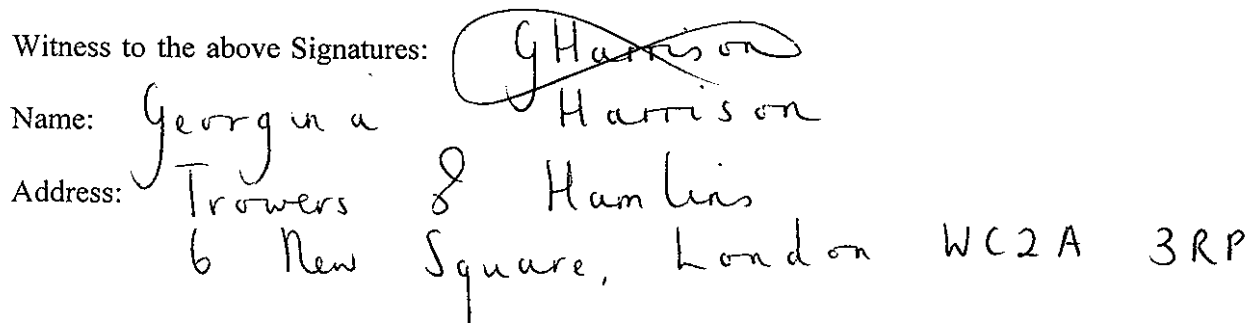 Witness to the above Signatures: GHarrison
Name: Georgina Harrison
Address: Trowers & Hamlins
6 New Square, London WC2A 3RP